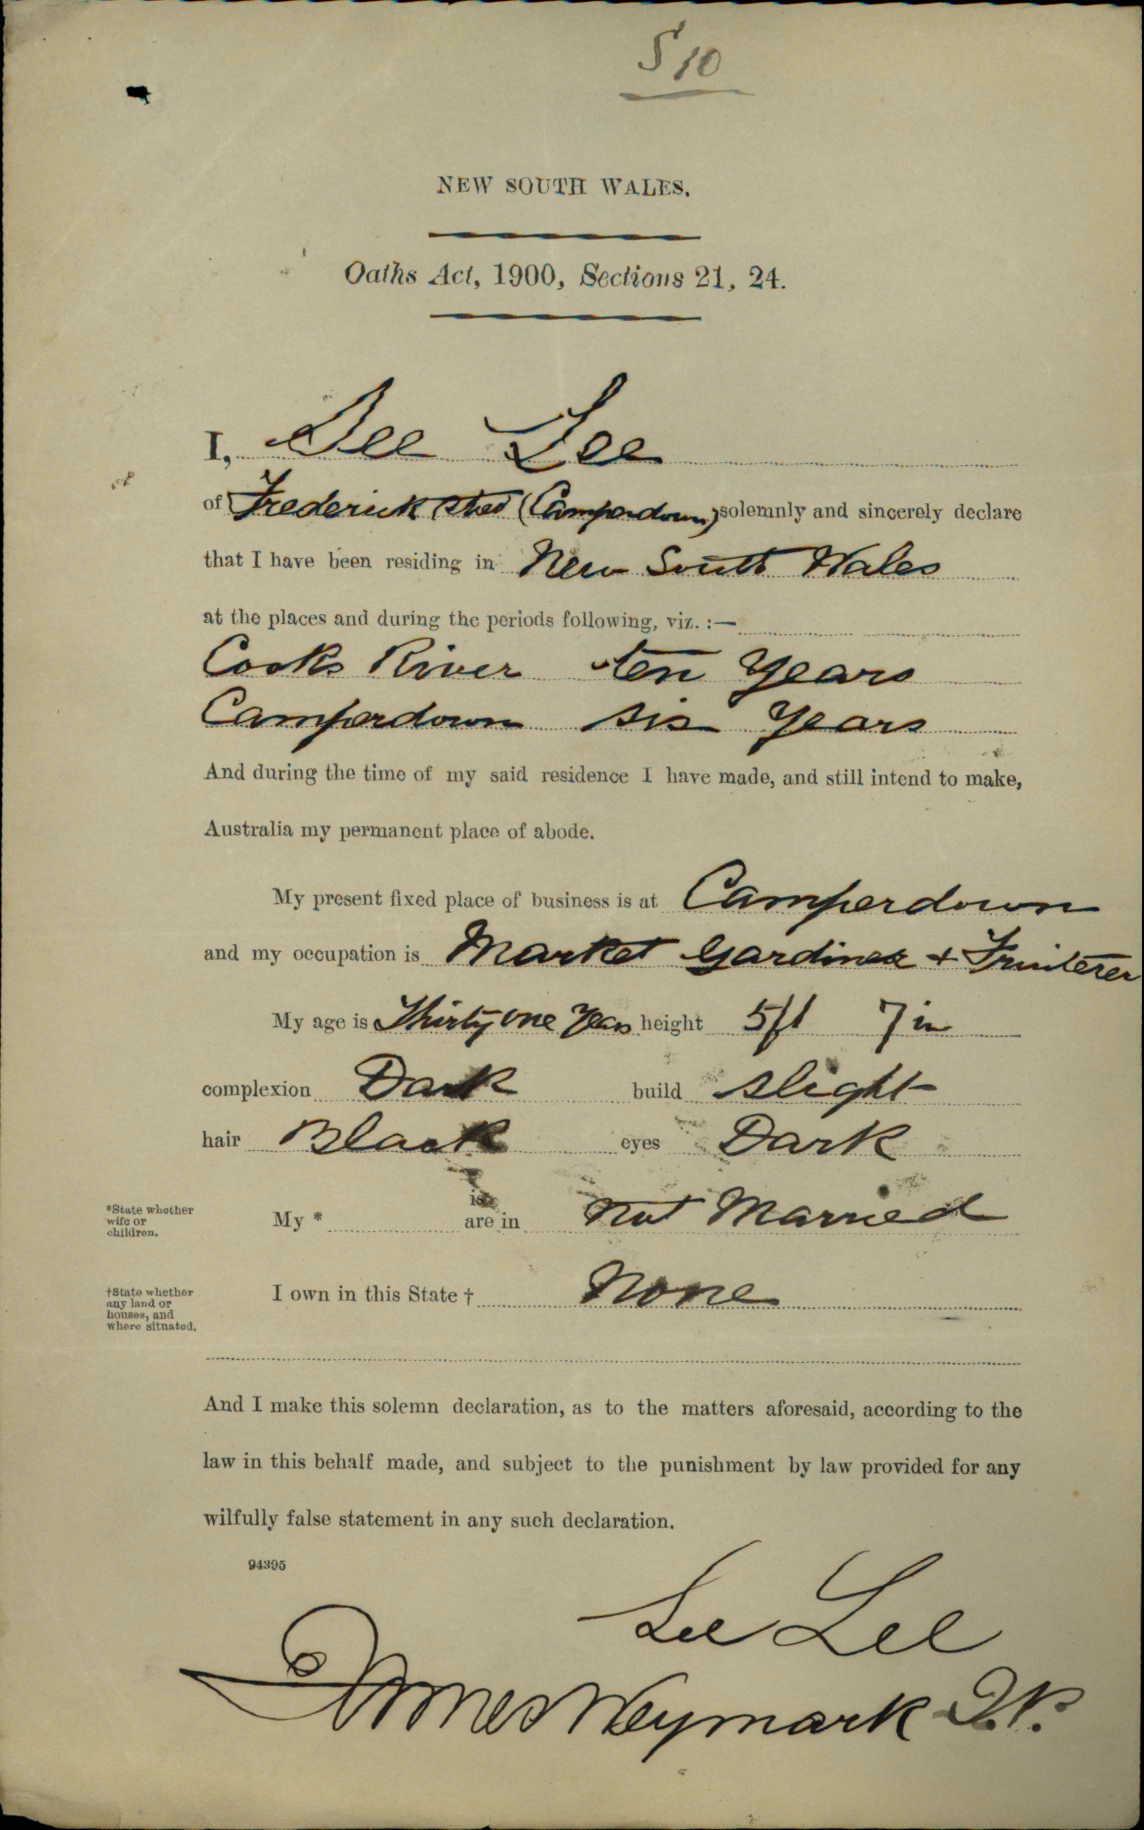 S 10
NEW SOUTH WALES.
Oaths Act, 1900, Sections 21, 24.
I, See Lee
of Frederick Street (Camperdown) solemnly and sincerely declare
that I have been residing in New South Wales
at the places and during the periods following, viz. :—
Cooks River ten Years
Camperdown six Years
And during the time of my said residence I have made, and still intend to make,
Australia my permanent place of abode.
My present fixed place of business is at Camperdown
and my occupation is Market Gardiner + Fruiterer
My age is Thirty one Years height 5ft 7 in
complexion Dark build slight
hair Black eyes Dark
*State whether
wife or
children.
My * is
are in Not Married
†State whether
any land or
houses, and
where situated.
I own in this State † None
And I make this solemn declaration, as to the matters aforesaid, according to the
law in this behalf made, and subject to the punishment by law provided for any
wilfully false statement in any such declaration.
94395
See Lee
James Weymark J.P.